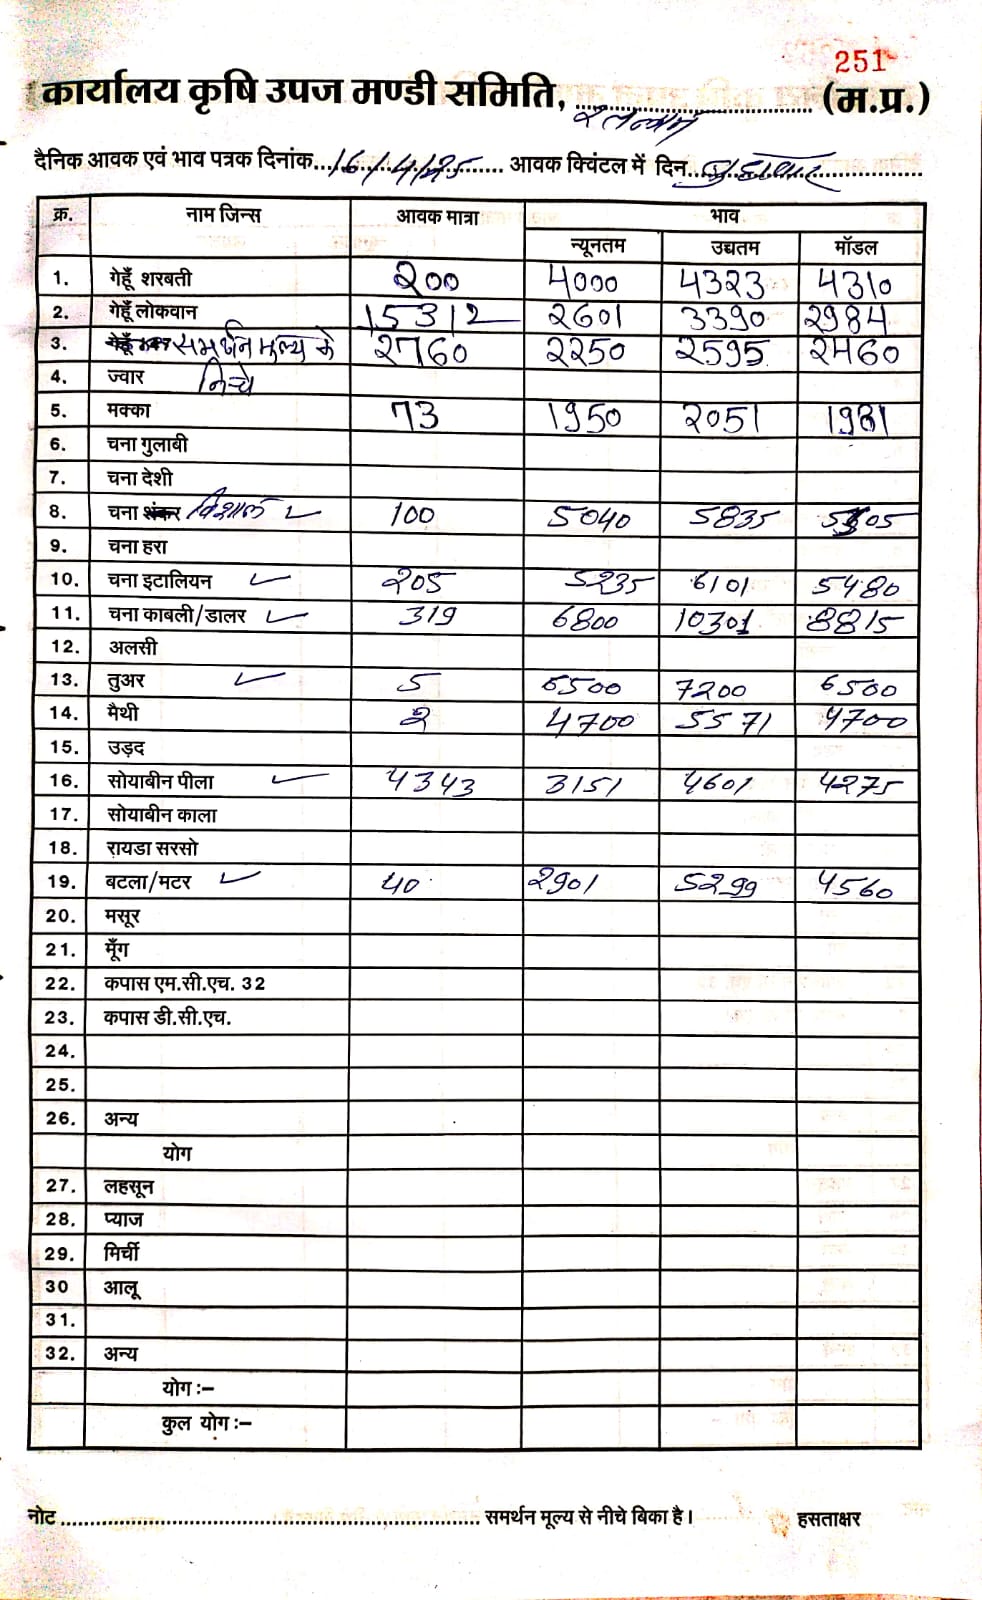 251
कार्यालय कृषि उपज मण्डी समिति, रतलाम (म.प्र.)
दैनिक आवक एवं भाव पत्रक दिनांक 16/4/25 आवक क्विंटल में दिन बुधवार
क्र. नाम जिन्स आवक मात्रा भाव
न्यूनतम उच्चतम मॉडल
1. गेहूँ शरबती 200 4000 4323 4310
2. गेहूँ लोकवान 15312 2601 3390 2984
3. समर्थन मूल्य के 2760 2250 2595 2460
4. ज्वार निचे
5. मक्का 73 1950 2051 1981
6. चना गुलाबी
7. चना देशी
8. चना शंकर विशाल 100 5040 5835
9. चना हरा
10. चना इटालियन 205 5235 6101 5480
11. चना काबली/डालर 319 6800 10301 8815
12. अलसी
13. तुअर 5 6500 7200 6500
14. मैथी 2 4700 5571 4700
15. उड़द
16. सोयाबीन पीला 4343 3151 4601 4275
17. सोयाबीन काला
18. रायडा सरसो
19. बटला/मटर 40 2901 5299 4560
20. मसूर
21. मूँग
22. कपास एम.सी.एच. 32
23. कपास डी.सी.एच.
24.
25.
26. अन्य
योग
27. लहसून
28. प्याज
29. मिर्ची
30 आलू
31.
32. अन्य
योग :–
कुल योग :–
नोट ........ समर्थन मूल्य से नीचे बिका है। हसताक्षर